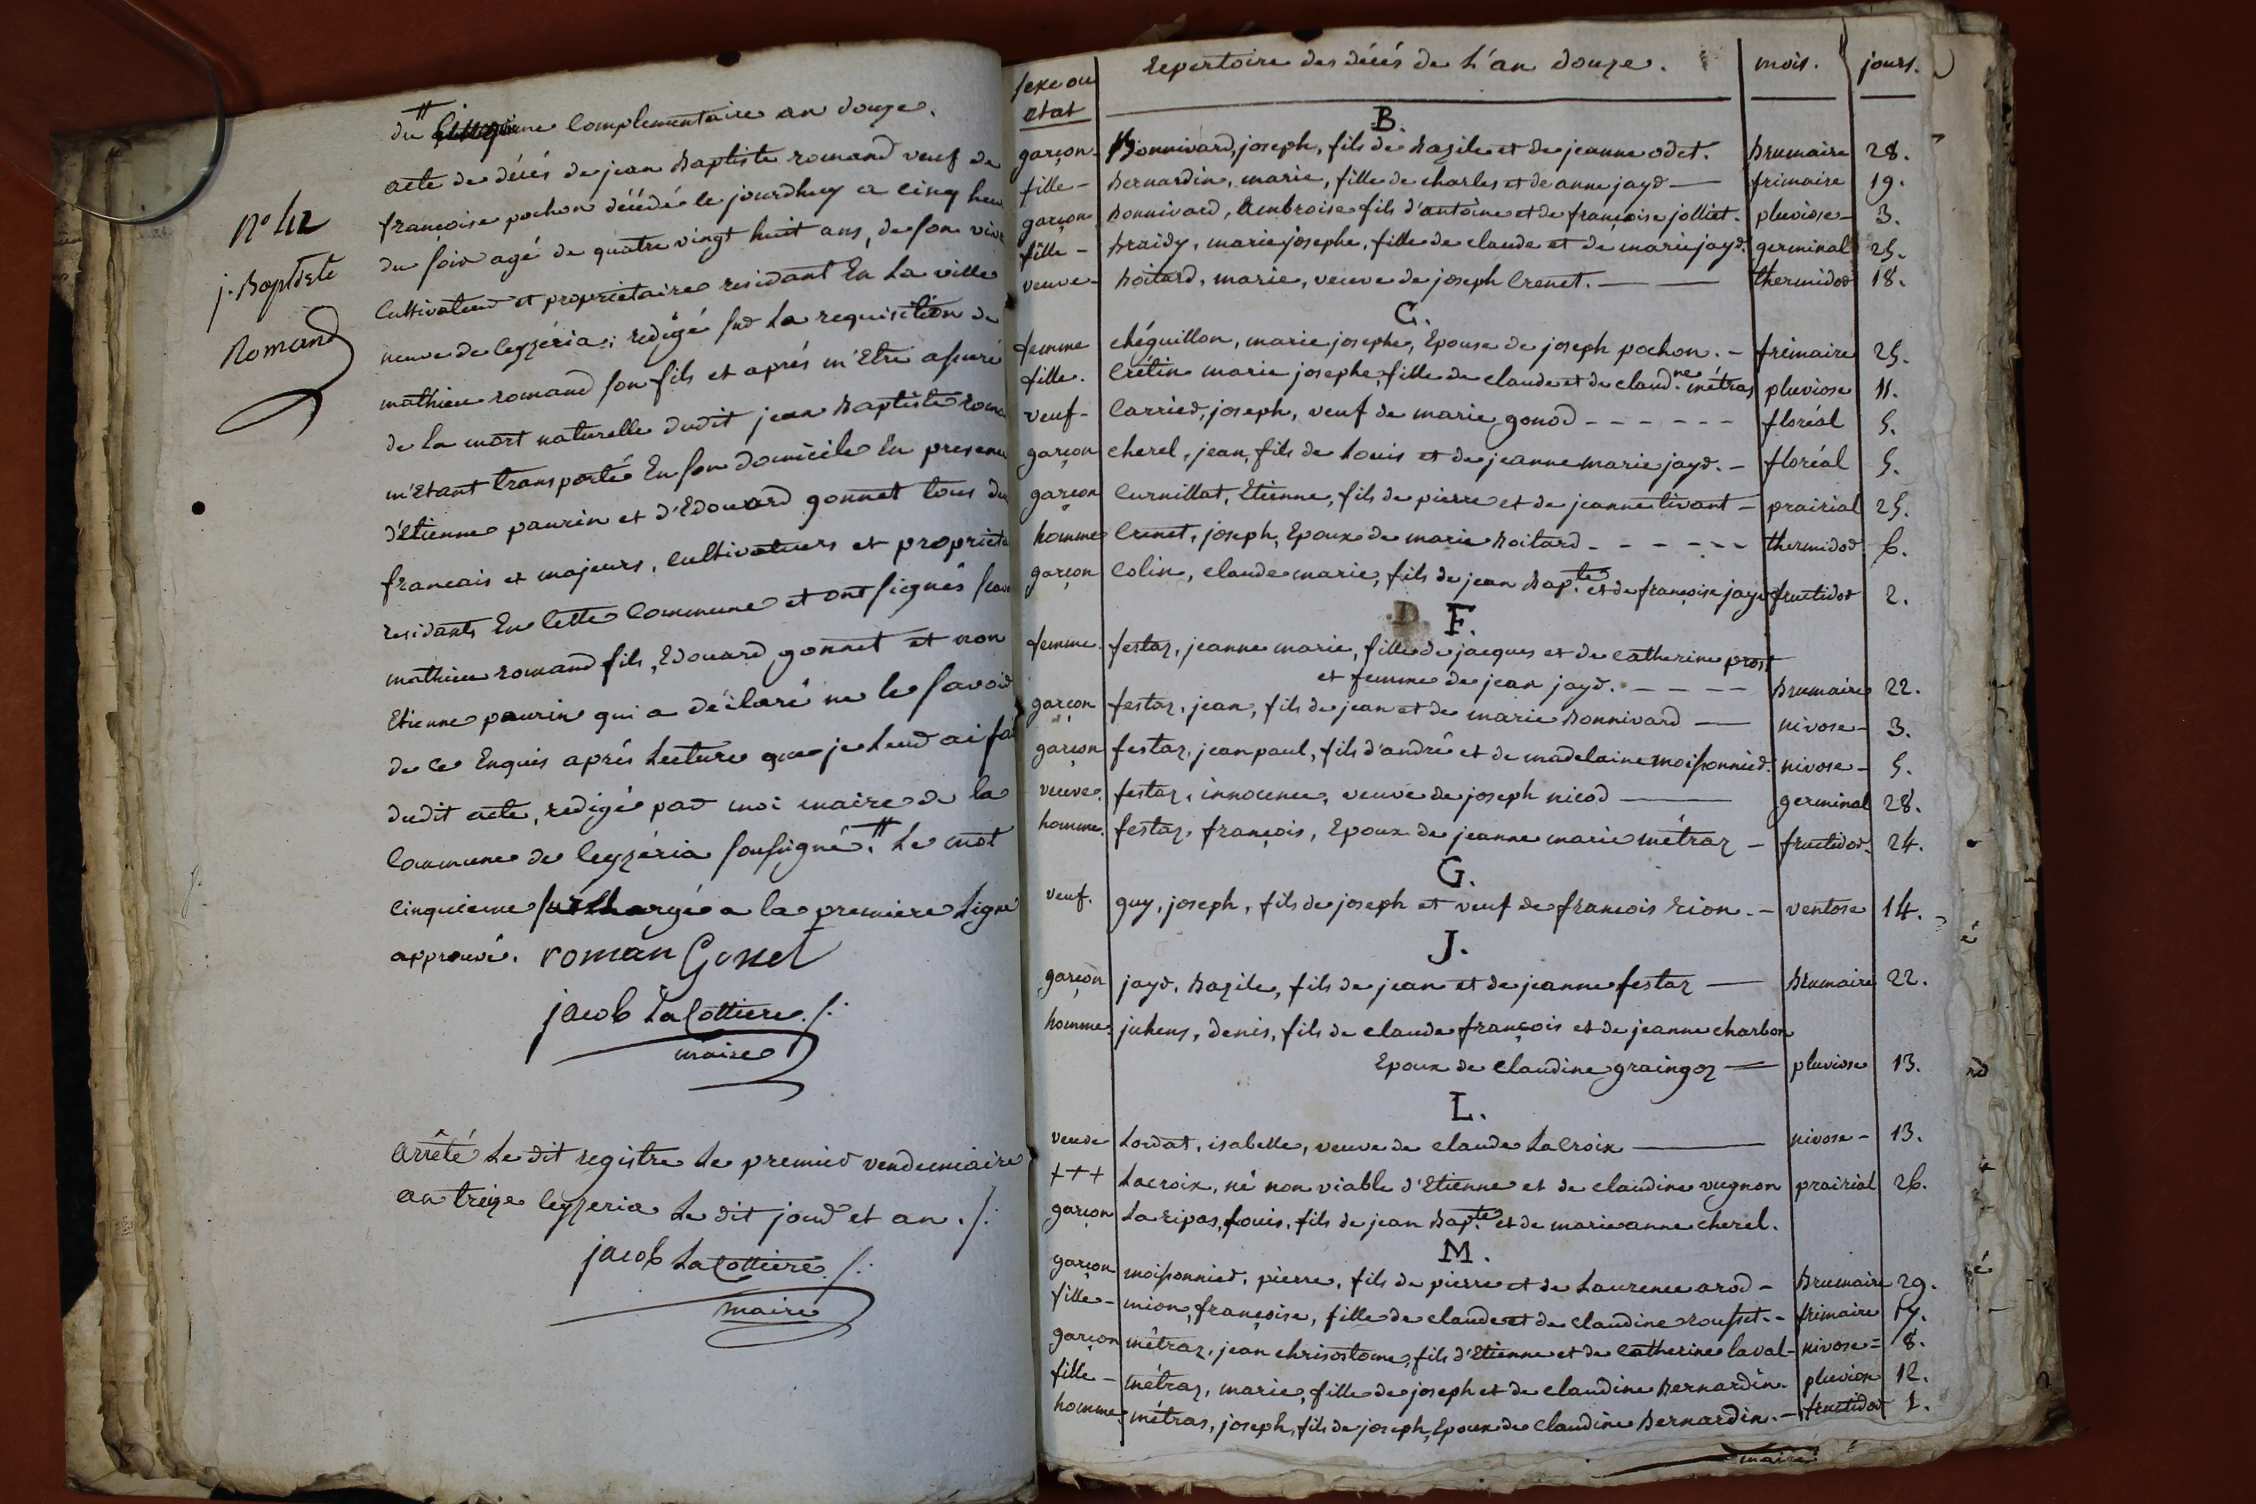 du cinquieme Complementaire an douze.
N° 42
j. Baptiste
Romand
acte de décés de jean Baptiste romand veuf de
françoise pochon décédé le jourdhuy a cinq heu
du soir agé de quatre vingt huit ans, de son viv
Cultivateur et propriétaire residant En La ville
neuve de leyzéria; redigé sur La requisition de
mathieu romand son fils et aprés m'Etre assuré
de La mort naturelle dudit jean Baptiste rom
m'Etant transporté En son domicile En presen
d'Etienne paurin et d'Edouard gonnet tous d
francais et majeurs, cultivateurs et propriéta
residants En Cette Commune et ont signés
mathieu romand fils, Edouard gonnet et non
Etienne paurin qui a déclaré ne le savoir
de ce Enquis aprés Lecture que je Leur ai fa
dudit acte, redigé par moi maire de la
Commune de leyzéria soussigné. Le mot
cinquieme surchargé a la premiere Ligne
approuvé. roman Gonet
jacob La Cottiere
maire
Arrêté Le dit registre Le premier vendemiaire
an treize leyzeria Le dit jour et an.
jacob La Cottiere
maire
sexe ou
etat
Repertoire des décés de L'an douze. mois. jours.
B.
garçon Bonnivard, joseph, fils de Bazile et de jeanne odet. Brumaire 28.
fille - Bernardin, marie, fille de charles et de anne jayr — frimaire 19.
garçon Bonnivard, Ambroise fils d'antoine et de françoise jolliet. pluviose - 3.
fille - Braidy, marie josephe, fille de claude et de marie jayr. germinal 25.
veuve - Boitard, marie, veuve de joseph Crenet. — — thermidor 18.
C.
femme chéguillon, marie josephe, Epouse de joseph pochon. - frimaire 25.
fille. Crétin marie josephe, fille de claude et de claudne métras pluviose 11.
veuf - Carrier, joseph, veuf de marie gonod - - - - - - floréal 5.
garçon cherel, jean, fils de Louis et de jeanne marie jayr. - floréal 5.
garçon Curnillat, Etienne, fils de pierre et de jeanne tivant - prairial 25.
homme Crenet, joseph, Epoux de marie Boitard - - - - - - thermidor 6.
garçon Colin, claude marie, fils de jean Bapte et de françoise jayr fructidor 2.
D. F.
femme. festaz, jeanne marie, fille de jacques et de catherine prost
et femme de jean jayr. - - - - - Brumaire 22.
garçon festaz, jean, fils de jean et de marie Bonnivard — nivose - 3.
garçon festaz, jean paul, fils d'andré et de madelaine moissonnier. nivose - 5.
veuve. festaz, innocence, veuve de joseph nicod — germinal 28.
homme. festaz, françois, Epoux de jeanne marie métraz - fructidor. 24.
G.
veuf. guy, joseph, fils de joseph et veuf de francois rion. - ventose 14.
J.
garçon jayr, Bazile, fils de jean et de jeanne festaz — Brumaire 22.
homme juhens, denis, fils de claude françois et de jeanne charbon
Epoux de claudine graingoz — pluviose 13.
L.
veuve Lordat, isabelle, veuve de claude La croix — nivose - 13.
+++ Lacroix, né non viable d'Etienne et de claudine vugnon prairial 26.
garçon La ripas, Louis, fils de jean Bapte et de marie anne cherel.
M.
garçon moissonnier, pierre, fils de pierre et de Laurence arod - Brumaire 29.
fille - mion, françoise, fille de claude et de claudine rousset. - frimaire 17.
garçon métraz, jean chrisostome, fils d'Etienne et de catherine laval - nivose = 8.
fille - métraz, marie, fille de joseph et de claudine Bernardin. pluviose 12.
homme métras, joseph, fils de joseph, Epoux de claudine Bernardin. - fructidor 1.
maire